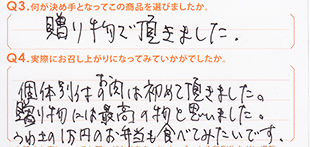 Q3.何が決め手となってこの商品を選びましたか。
贈り物で頂きました.
Q4.実際にお召し上がりになってみていかがでしたか。
個体別のお肉は初めて頂きました。
贈り物には最高の物と思いました。
1万円のお弁当も食べてみたいです。